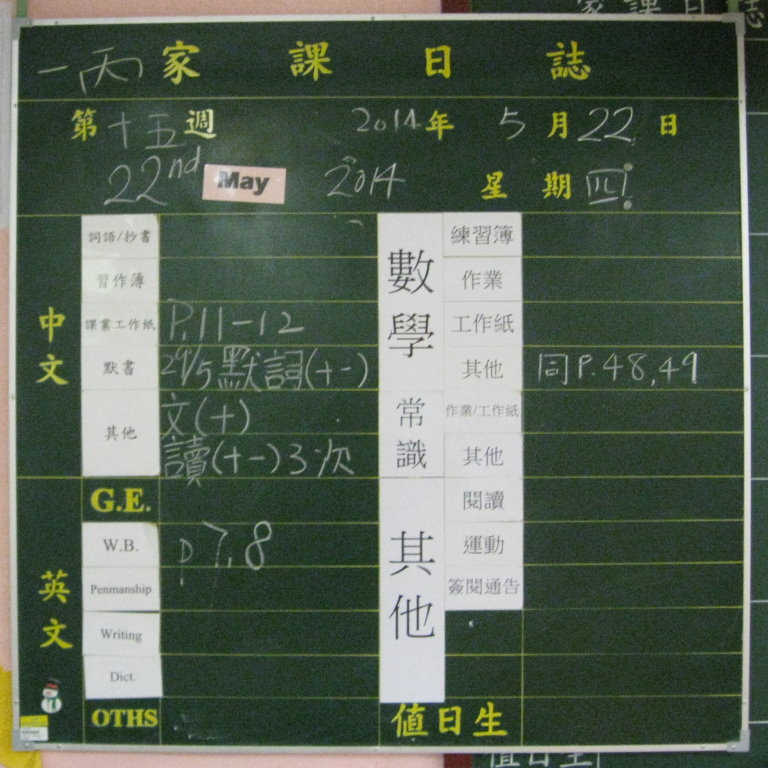 一丙 家課日誌
第十五週 2014年 5月22日
22nd May 2014 星期四
中文
詞語/抄書
習作簿
課業工作紙 P.11-12
默書 29/5默詞(十一)
其他 文(十)
讀(十一)3次
數學
練習簿
作業
工作紙
其他 同P.48,49
常識
作業/工作紙
其他
英文
G.E.
W.B. P7,8
Penmanship
Writing
Dict.
OTHS
其他
閱讀
運動
簽閱通告
值日生
家課日誌
值日生